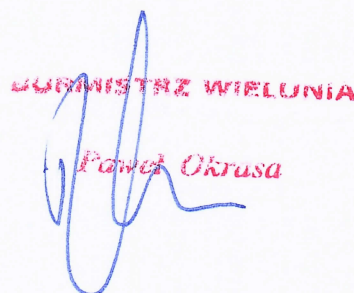 BURMISTRZ WIELUNIA
Paweł Okrasa